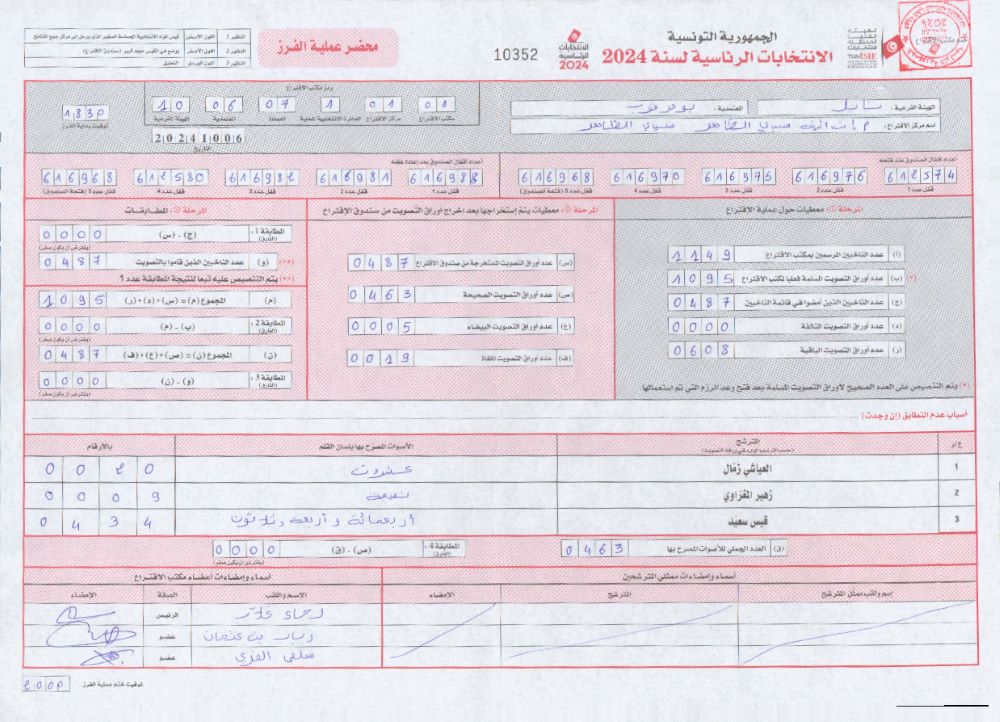 الجمهورية التونسية
الانتخابات الرئاسية لسنة 2024
الانتخابات
الرئاسية
2024
10352
محضر عملية الفرز
النظير 1 اللون الأحمر
النظير 2 اللون الأصفر يوضع في الكيس مجد كبير (صندوق الاقتراع)
النظير 3 اللون الوردي التعليق
الهيئة الفرعية : نابل
المعتمدية : بوعرقوب
اسم مركز الاقتراع :
رمز مكتب الاقتراع
01 01 1 07 06 10
مكتب الاقتراع مركز الاقتراع الدائرة الانتخابية المحلية العمادة المعتمدية الهيئة الفرعية
20241006
التاريخ
1830
توقيت بداية الفرز
أعداد أقفال الصندوق عند فتحه
612574 616976 616975 616970 616968
قفل عدد 1 قفل عدد 2 قفل عدد 3 قفل عدد 4 قفل عدد 5 (فتحة الصندوق)
أعداد أقفال الصندوق بعد إعادة غلقه
616988 616981 616982 612580 616968
قفل عدد 1 قفل عدد 2 قفل عدد 3 قفل عدد 4 قفل عدد 5 (فتحة الصندوق)
المرحلة 1: معطيات حول عملية الاقتراع
(أ) عدد الناخبين المرسمين بمكتب الاقتراع 1149
(*) (ب) عدد أوراق التصويت المسلمة فعليا لمكتب الاقتراع 1095
(ج) عدد الناخبين الذين أمضوا في قائمة الناخبين 0487
(د) عدد أوراق التصويت التالفة 0000
(ر) عدد أوراق التصويت الباقية 0608
(*) يتم التنصيص على العدد الصحيح لأوراق التصويت المسلمة بعد فتح وعد الرزم التي تم استعمالها
المرحلة 2: معطيات يتم إستخراجها بعد اخراج أوراق التصويت من صندوق الاقتراع
(س) عدد أوراق التصويت المستخرجة من صندوق الاقتراع 0487
(ص) عدد أوراق التصويت الصحيحة 0463
(ع) عدد أوراق التصويت البيضاء 0005
(ف) عدد أوراق التصويت الملغاة 0019
المرحلة 3: المطابقات
المطابقة 1: (الفارق) (ج) - (س) 0000
(يفترض أن يكون صفر)
(**) (و) عدد الناخبين الذين قاموا بالتصويت 0487
(**) يتم التنصيص عليه تبعا لنتيجة المطابقة عدد 1
(م) المجموع (م) = (س)+(د)+(ر) 1095
المطابقة 2: (الفارق) (ب) - (م) 0000
(يفترض أن يكون صفر)
(ن) المجموع (ن) = (ص)+(ع)+(ف) 0487
المطابقة 3: (الفارق) (و) - (ن) 0000
(يفترض أن يكون صفر)
أسباب عدم التطابق (إن وجدت)
ع/ر المترشح الأصوات المصرح بها بلسان القلم بالأرقام
(حسب الترتيب الوارد في ورقة التصويت)
1 العياشي زمّال عشرون 0020
2 زهير المغزاوي تسعة 0009
3 قيس سعيّد أربعمائة و أربعة وثلاثون 0434
(ق) العدد الجملي للأصوات المصرح بها 0463
المطابقة 4: (الفارق) (ص) - (ق) 0000
(يفترض أن يكون صفر)
أسماء وإمضاءات ممثلي المترشحين
إسم ولقب ممثل المترشح المترشح الإمضاء
أسماء وإمضاءات أعضاء مكتب الاقتراع
الاسم واللقب الصفة الإمضاء
الرئيس
عضو
عضو
توقيت ختم عملية الفرز